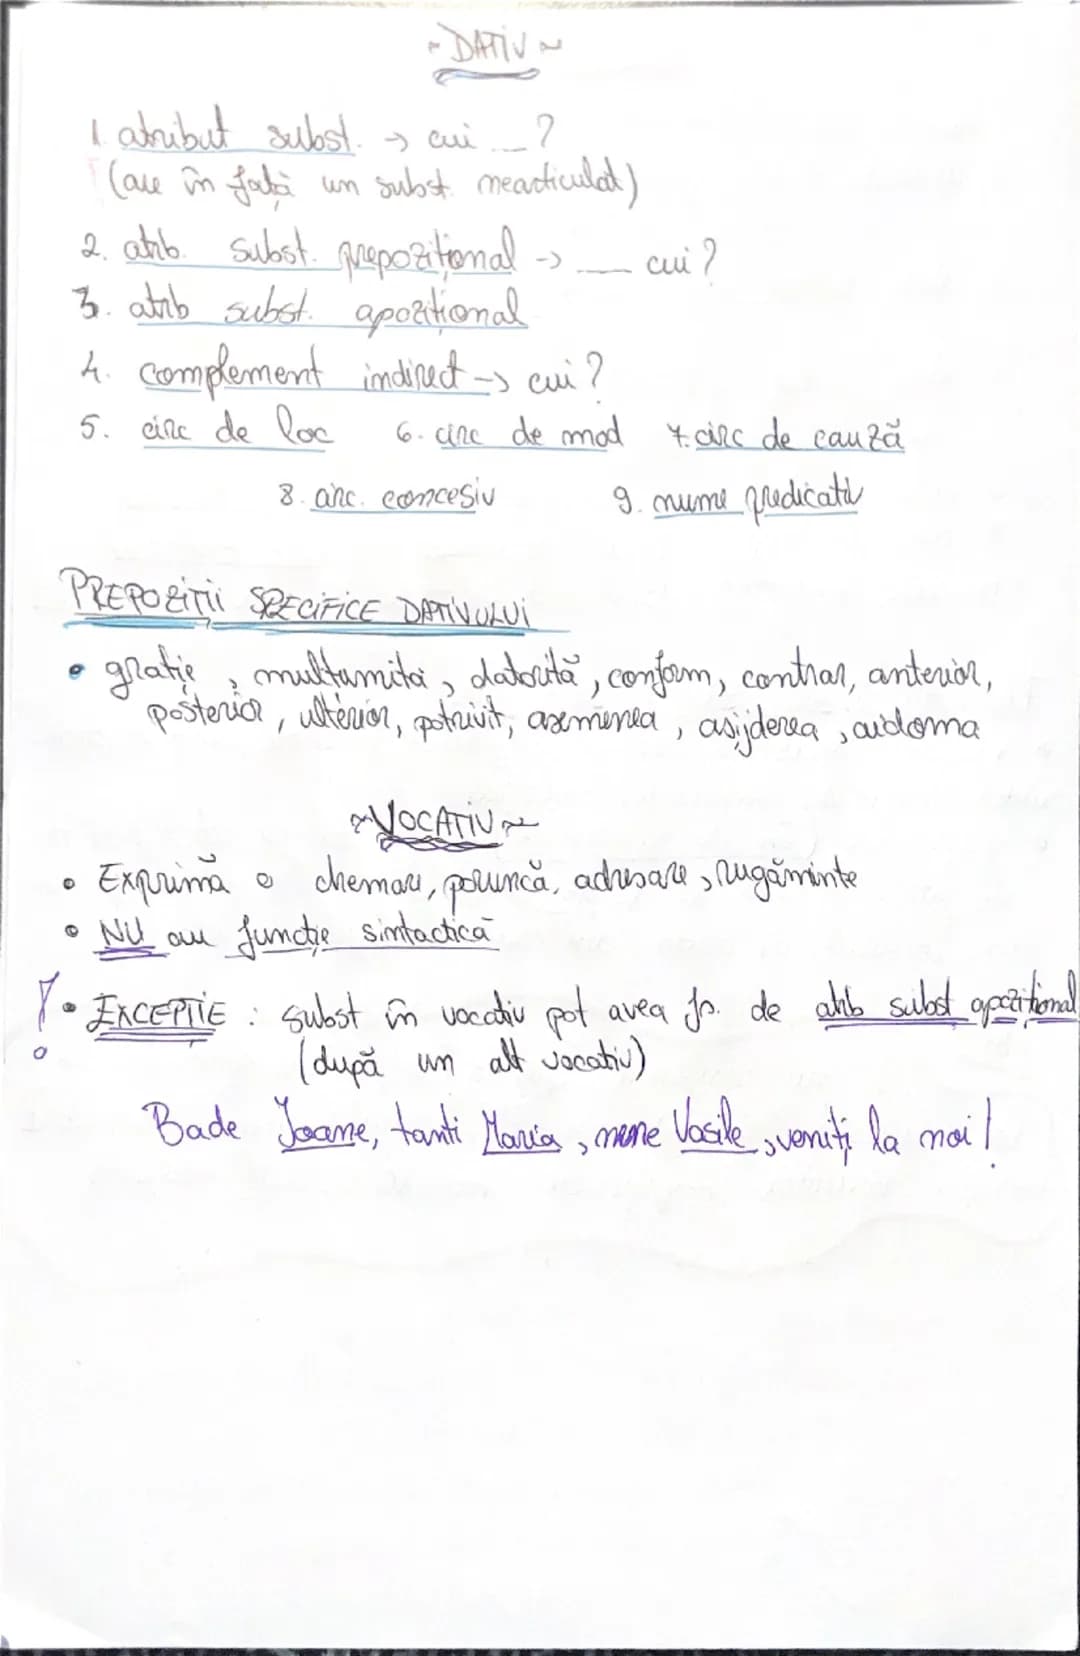 ~ DATIV ~
1. atribut subst. → cui __?
(are în față un subst. nearticulat)
2. atrib. subst. prepozițional → ___ cui?
3. atrib subst. apozițional
4. complement indirect → cui?
5. circ de loc 6. circ de mod 7. circ de cauză
8. circ. concesiv 9. nume predicativ
PREPOZIȚII SPECIFICE DATIVULUI
• grație, mulțumită, datorită, conform, contrar, anterior,
posterior, ulterior, potrivit, asemenea, așijderea, aidoma
~ VOCATIV ~
• Exprimă o chemare, poruncă, adresare, rugăminte
• NU au funcție sintactică
! • EXCEPȚIE : subst în vocativ pot avea fs. de atrib subst apozițional
(după un alt vocativ)
Bade Ioane, tanti Maria, nene Vasile, veniți la noi!